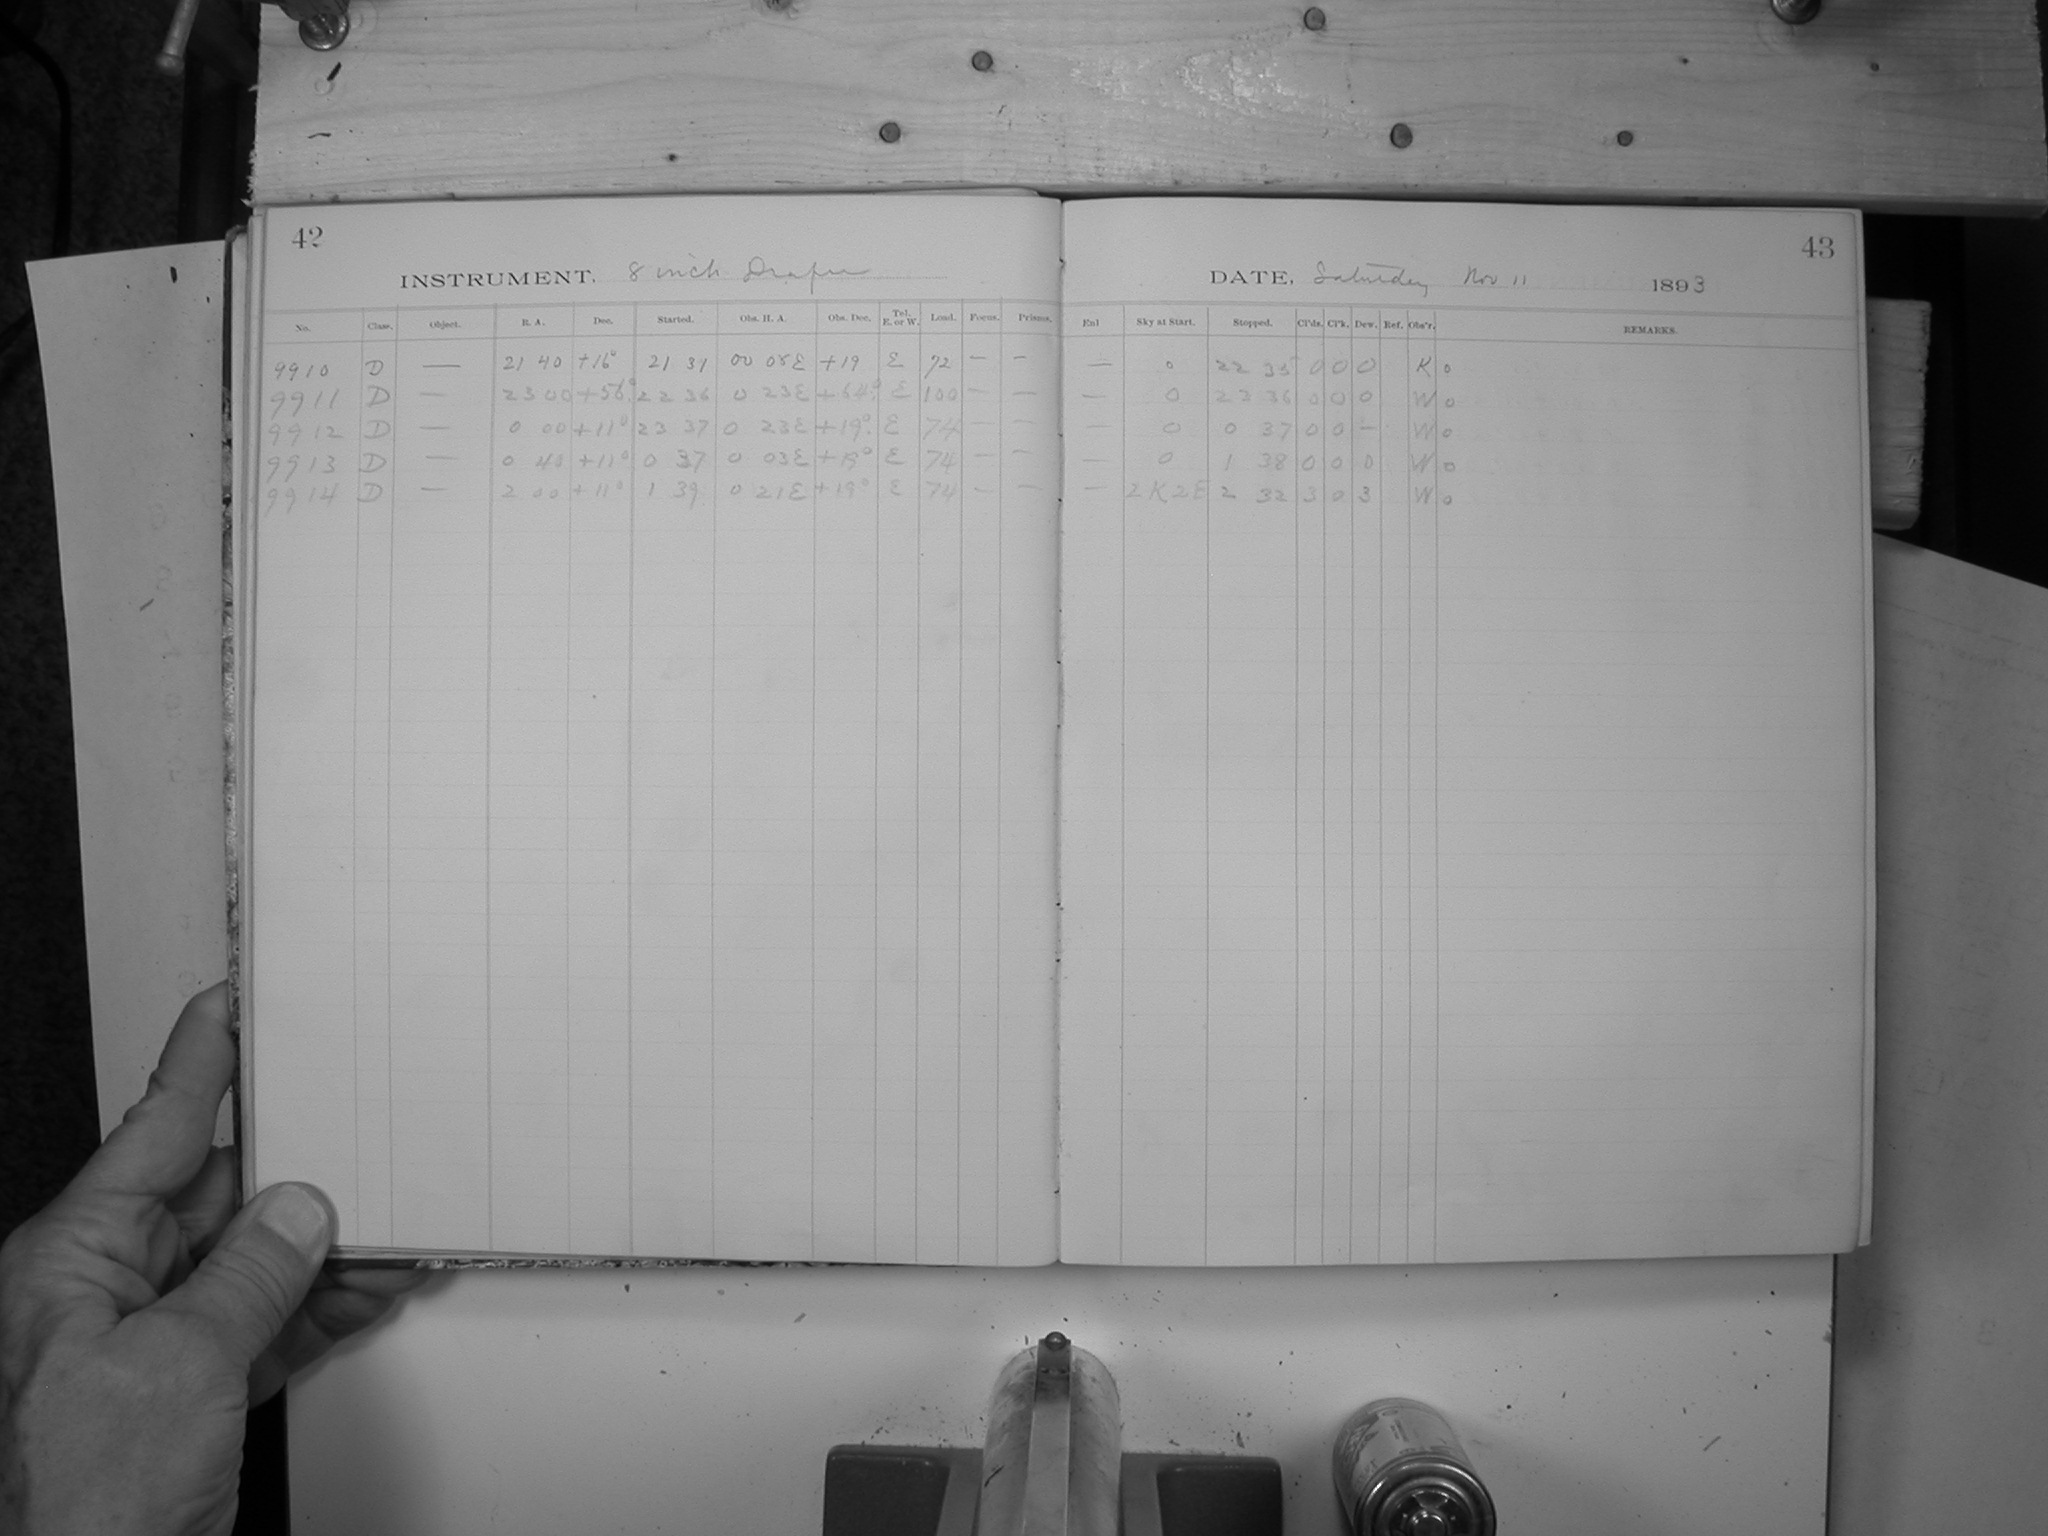 42
INSTRUMENT, 8 inch Draper
No. Class. Object. R. A. Dec. Started. Obs. H. A. Obs. Dec. Tel. E. or W. Load. Focus. Prisms.
9910 D — 21 40 +16° 21 31 00 08E +19 E 72 — —
9911 D — 23 00 +56° 22 36 0 23E +64° E 100 — —
9912 D — 0 00 +11° 23 37 0 23E +19° E 74 — —
9913 D — 0 40 +11° 0 37 0 03E +19° E 74 — —
9914 D — 2 00 +11° 1 39 0 21E +19° E 74 — —
43
DATE, Saturday Nov 11 1893
Enl Sky at Start. Stopped. Cl'ds. Cl'k. Dew. Ref. Obs'r. REMARKS.
— 0 22 35 0 0 0 K o
— 0 23 36 0 0 0 W o
— 0 0 37 0 0 — W o
— 0 1 38 0 0 0 W o
— 2K2E 2 32 3 0 3 W o